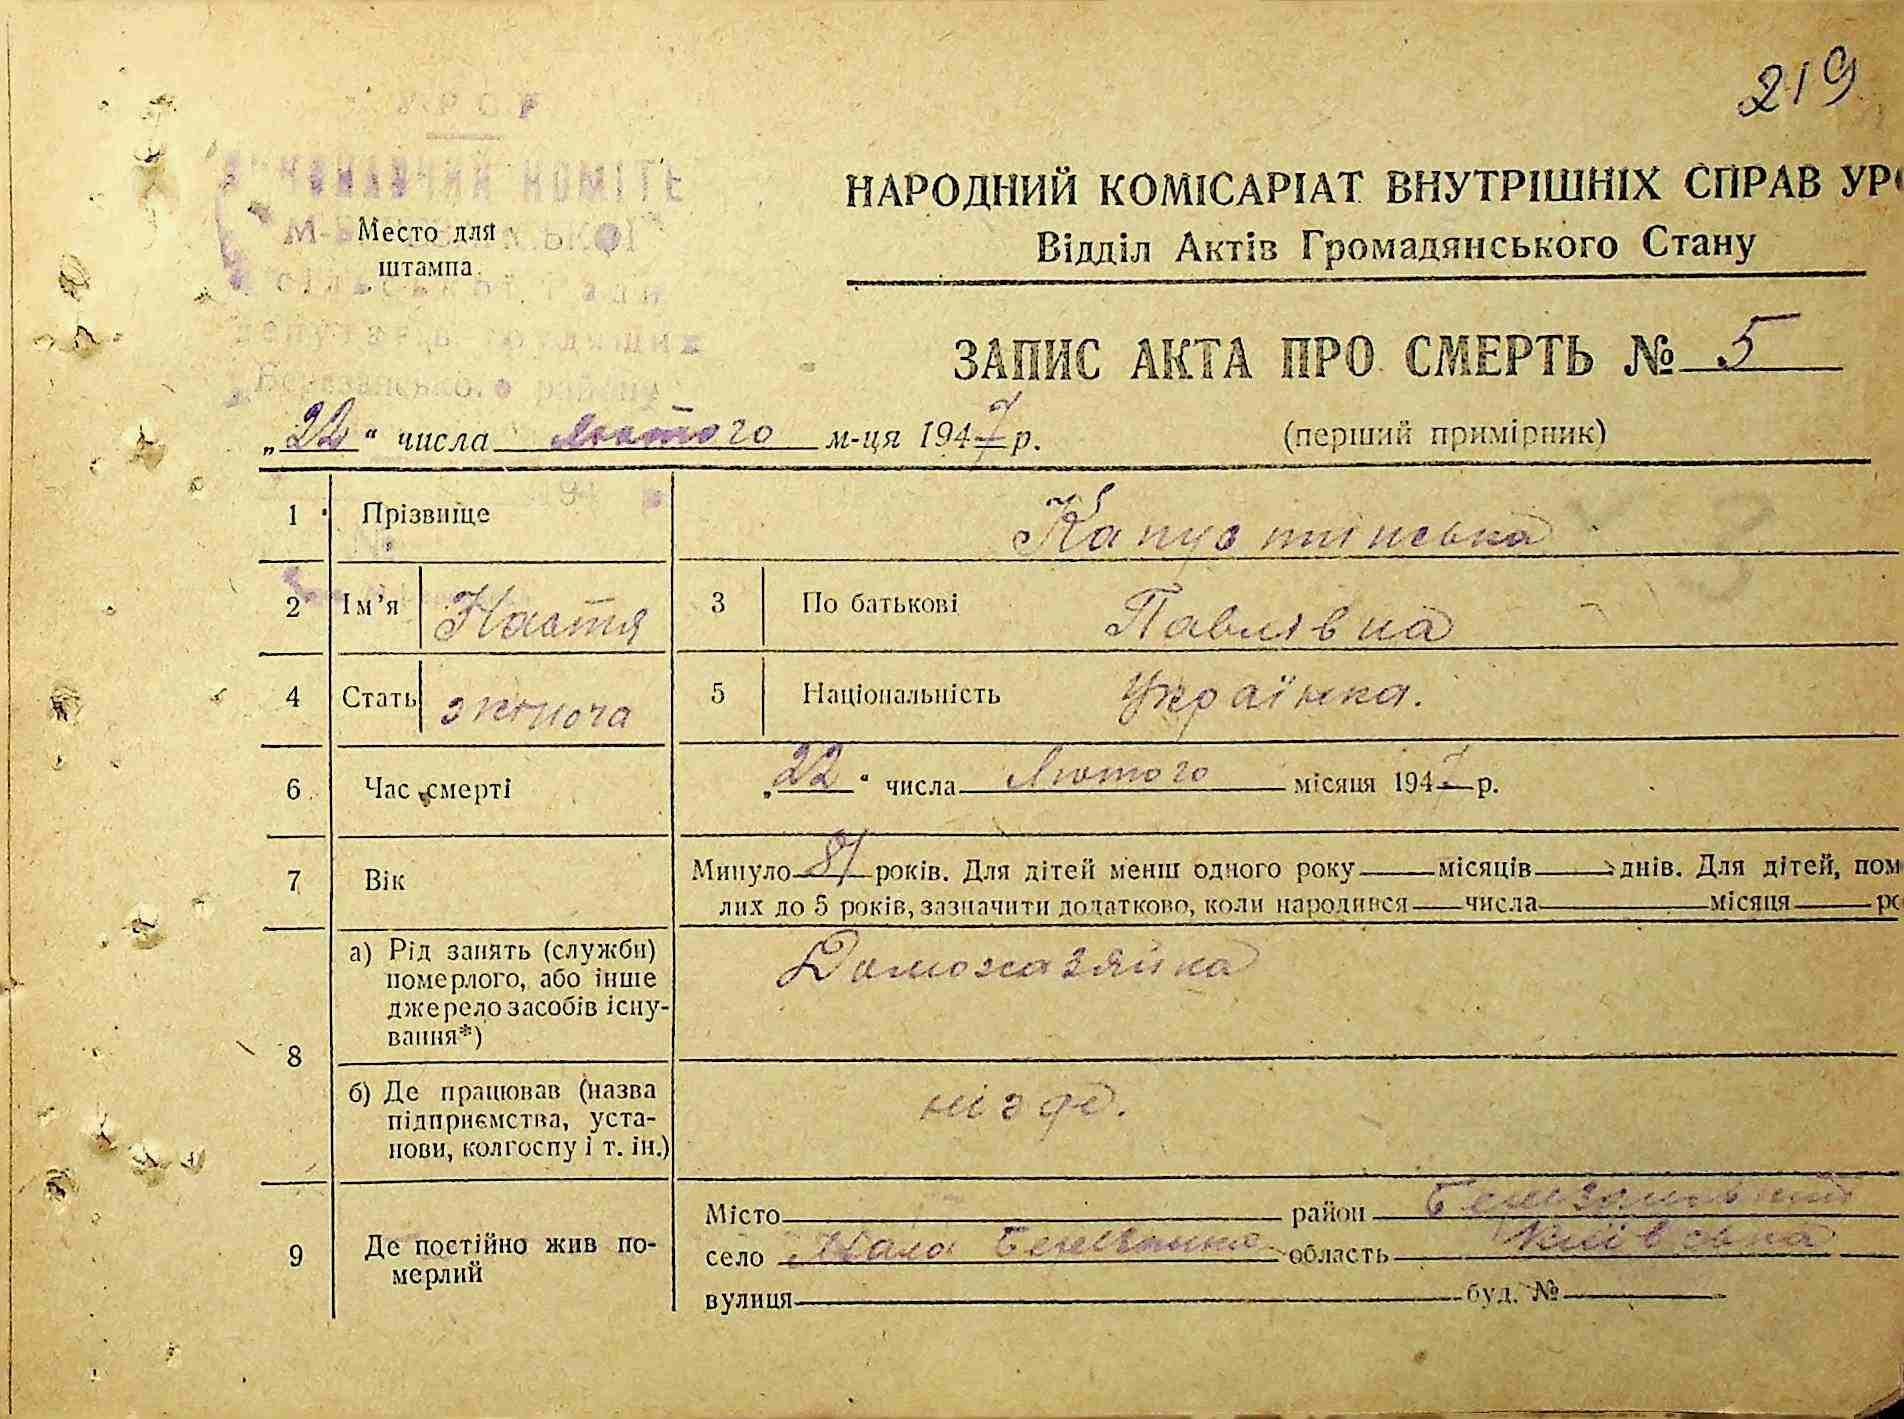 219
УРСР
НОМІТЕ
Место для
штампа
НАРОДНИЙ КОМІСАРІАТ ВНУТРІШНІХ СПРАВ УР
Відділ Актів Громадянського Стану
ЗАПИС АКТА ПРО СМЕРТЬ № 5
„22“ числа лютого м-ця 1947 р.
(перший примірник)
1 Прізвище Капустинська
2 Ім’я Настя 3 По батькові Павлівна
4 Стать жіноча 5 Національність Українка.
6 Час смерті „22“ числа Лютого місяця 1947 р.
7 Вік Минуло 81 років. Для дітей менш одного року місяців днів. Для дітей, пом
лих до 5 років, зазначити додатково, коли народився числа місяця ро
8 а) Рід занять (служби) Домохазяйка
померлого, або інше
джерело засобів існу-
вання*)
б) Де працював (назва нігде.
підприємства, уста-
нови, колгоспу і т. ін.)
9 Де постійно жив по-
мерлий
Місто район Березанський
село Мала Березанка область Київська
вулиця буд. №